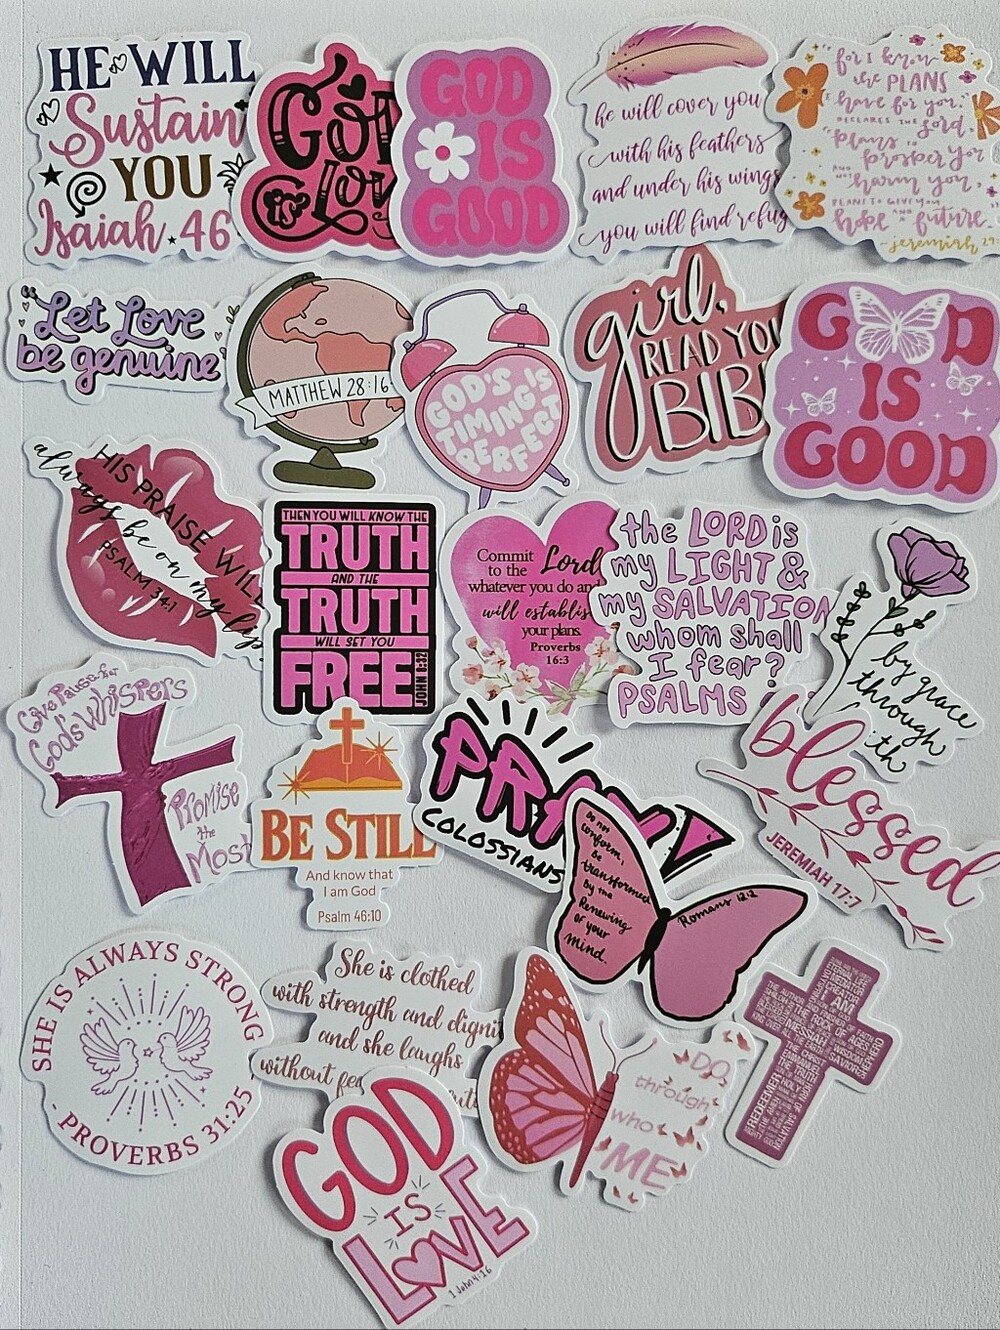 HE WILL
Sustain
YOU
Isaiah 46
GOD
is
Love
GOD
IS
GOOD
he will cover you
with his feathers
and under his wings
you will find refug
for i know
the PLANS
i have for you,
DECLARES THE Lord,
"plans to
prosper you
AND NOT harm you,
PLANS TO GIVE YOU
hope AND A future."
-jeremiah 29
"Let Love
be genuine"
MATTHEW 28:16
GOD'S
TIMING IS
PERFECT
girl,
READ YOU
BIB
GOD
IS
GOOD
HIS PRAISE WILL
always be on my lip
PSALM 34:1
THEN YOU WILL KNOW THE
TRUTH
AND THE
TRUTH
WILL SET YOU
FREE
JOHN 8:32
Commit
to the Lord
whatever you do and
will establis
your plans.
Proverbs
16:3
the LORD is
my LIGHT &
my SALVATION
whom shall
I fear?
PSALMS
by grace
through
ith
Give Pause for
God's Whispers
Promise
the
Most
BE STILL
And know that
I am God
Psalm 46:10
PRAY
COLOSSIANS
Do not
conform,
be
transformed
by the
Renewing
of your
mind.
Romans 12:2
blessed
JEREMIAH 17:7
SHE IS ALWAYS STRONG
- PROVERBS 31:25
She is clothed
with strength and digni
and she laughs
without fea
DO
through
who
ME
I AM
MESSIAH
REDEEMER
GOD
IS
LOVE
1 John 4:16